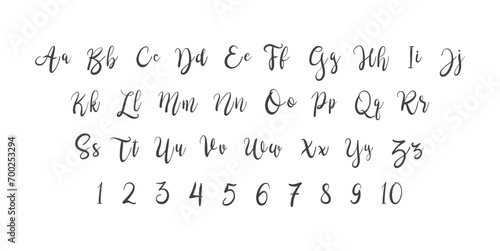 Aa Bb Cc Dd Ee Ff Gg Hh Ii Jj
Kk Ll Mm Nn Oo Pp Qq Rr
Ss Tt Uu Vv Ww Xx Yy Zz
1 2 3 4 5 6 7 8 9 10
Adobe Stock | #700253294